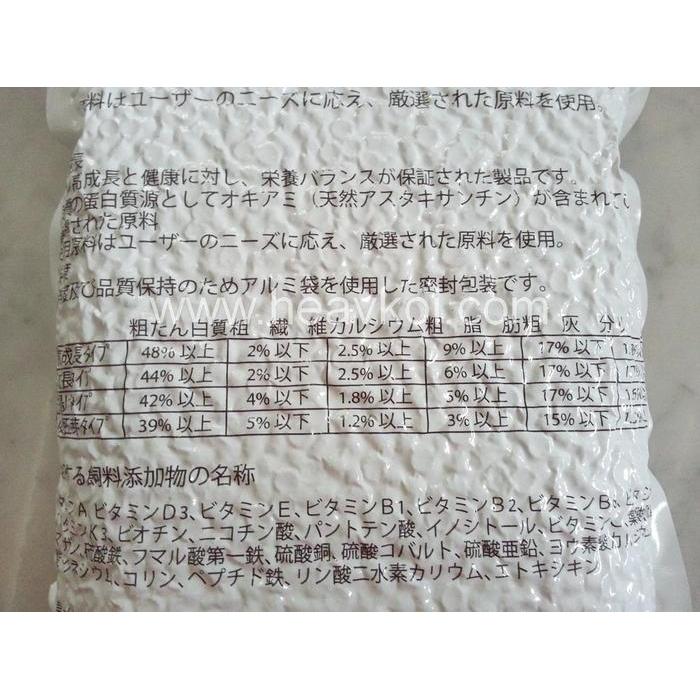 料はユーザーのニーズに応え、厳選された原料を使用。
高成長と健康に対し、栄養バランスが保証された製品です。
の蛋白質源としてオキアミ（天然アスタキサンチン）が含まれて
された原料
原料はユーザーのニーズに応え、厳選された原料を使用。
及び品質保持のためアルミ袋を使用した密封包装です。
www.heavkoi.com
粗たん白質 粗 繊 維 カルシウム 粗 脂 肪 粗 灰 分
成長タイプ 48% 以上 2% 以下 2.5% 以上 9% 以上 17% 以下
タイプ 44% 以上 2% 以下 2.5% 以上 6% 以上 17% 以下
タイプ 42% 以上 4% 以下 1.8% 以上 5% 以上 17% 以下
胚芽タイプ 39% 以上 5% 以下 1.2% 以上 3% 以上 15% 以下
る飼料添加物の名称
A、ビタミンD3、ビタミンE、ビタミンB1、ビタミンB2、ビタミンB
K3、ビオチン、ニコチン酸、パントテン酸、イノシトール、ビタミン
硫酸鉄、フマル酸第一鉄、硫酸銅、硫酸コバルト、硫酸亜鉛、ヨウ素酸カルシウム
コリン、ペプチド鉄、リン酸二水素カリウム、エトキシキン